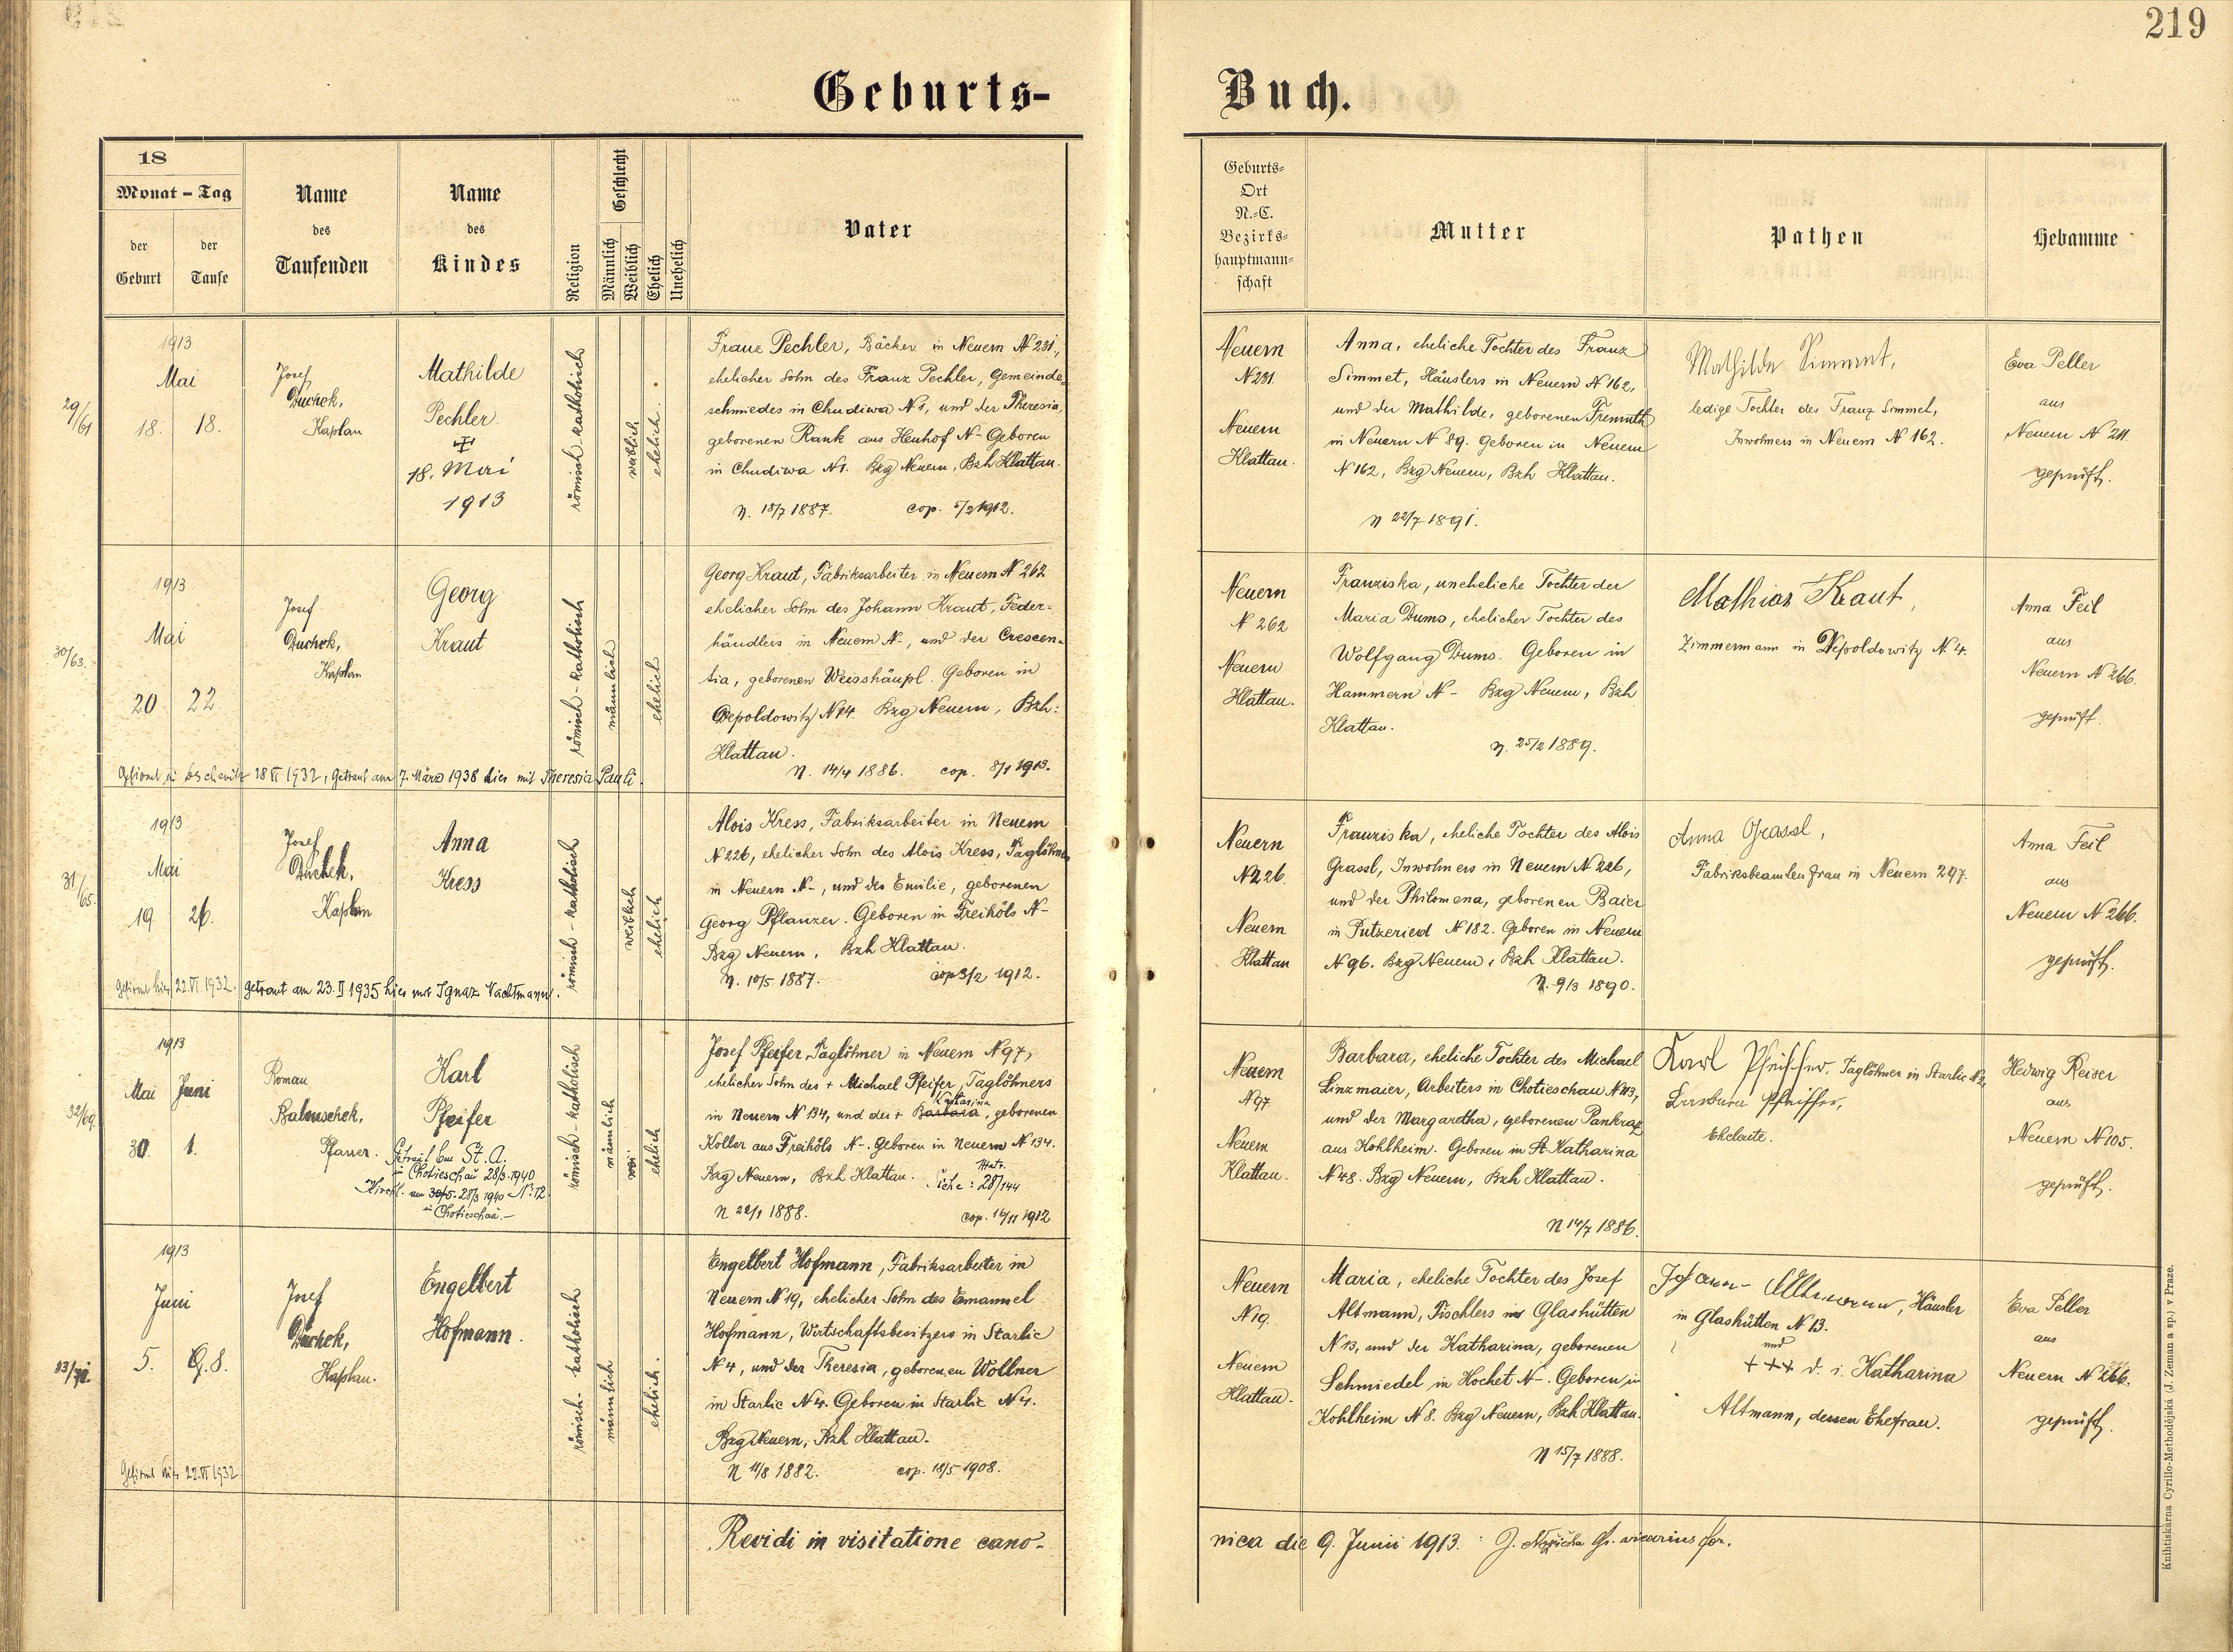 219
Geburts-
Buch.
18
Monat - Tag
der Geburt
der Taufe
Name des Taufenden
Name des Kindes
Religion
Geschlecht
Männlich
Weiblich
Ehelich
Unehelich
Vater
Geburts-
Ort
N.-C.
Bezirks-
hauptmann-
schaft
Mutter
Pathen
Hebamme
29/61
1913
Mai
18. 18.
Josef
Duchek,
Kaplan
Mathilde
Pechler
18. Mai
1913
römisch katholisch
weiblich
ehelich.
Franz Pechler, Bäcker in Neuern N 231,
ehelicher Sohn des Franz Pechler, Gemeinde-
schmiedes in Chudiwa N 1, und der Theresia,
geborenen Rank aus Heuhof N- Geboren
in Chudiwa N 1. Bzg Neuern, Bzh Klattau.
N. 18/7 1887. cop. 5/2 1912.
Neuern
N 231
Neuern
Klattau.
Anna, eheliche Tochter des Franz
Simmet, Häuslers in Neuern N 162,
und der Mathilde, geborenen Fremuth
in Neuern N 89. Geboren in Neuern
N 162, Bzg Neuern, Bzh Klattau.
N 22/7 1891.
Mathilde Simmet,
ledige Tochter des Franz Simmet,
Inwohners in Neuern N 162.
Eva Peller
aus
Neuern N 211.
geprüft.
30/63.
1913
Mai
20 22
Josef
Duchek,
Kaplan
Georg
Kraut
römisch-katholisch
männlich
ehelich
Georg Kraut, Fabriksarbeiter in Neuern N 262
ehelicher Sohn des Johann Kraut, Feder-
händlers in Neuern N-, und der Crescen-
tia, geborenen Weisshäupl. Geboren in
Depoldowitz N 14. Bzg Neuern, Bzh:
Klattau.
N. 14/4 1886. cop. 8/1 1913.
28 VI 1932, getraut am 7. März 1938 hier mit Theresia Pauli.
Neuern
N 262
Neuern
Klattau.
Franziska, uneheliche Tochter der
Maria Dums, ehelicher Tochter des
Wolfgang Dums. Geboren in
Hammern N- Bzg Neuern, Bzh
Klattau.
N. 25/2 1889.
Mathias Kraut,
Zimmermann in Depoldowitz N 4.
Anna Feil
aus
Neuern N 266.
geprüft.
31/65.
1913
Mai
19 26.
Josef
Duchek,
Kaplan
Anna
Kress
römisch-katholisch
weiblich
ehelich
Alois Kress, Fabriksarbeiter in Neuern
N 226, ehelicher Sohn des Alois Kress, Taglöhners
in Neuern N-, und der Emilie, geborenen
Georg Pflanzer. Geboren in Freihöls N-
Bzg Neuern, Bzh Klattau.
N. 10/5 1887. cop 3/2 1912.
Gefirmt hier 22. VI 1932. getraut am 23. II 1935 hier mit Ignaz Wachtmann.
Neuern
N 226.
Neuern
Klattau
Franziska, eheliche Tochter des Alois
Grassl, Inwohners in Neuern N 226,
und der Philomena, geborenen Baier
in Putzeried N 182. Geboren in Neuern
N 96. Bzg Neuern, Bzh Klattau.
N. 9/3 1890.
Anna Grassl,
Fabriksbeamtenfrau in Neuern 247.
Anna Feil
aus
Neuern N 266.
geprüft.
32/69.
1913
Mai Juni
30 1.
Roman
Pfarrer.
Karl
Pfeifer
Getraut beim St. A.
in Chotieschau 28/3. 1940
in Chotieschau.-
römisch-katholisch
männlich
wei
ehelich
Josef Pfeifer, Taglöhner in Neuern N 97,
ehelicher Sohn des + Michael Pfeifer, Taglöhners
in Neuern N 134, und der + Barbara Katharina, geborenen
Koller aus Freihöls N-. Geboren in Neuern N 134.
Bzg Neuern, Bzh Klattau.
N 22/1 1888. cop. 16/11 1912
Neuern
N 97
Neuern
Klattau.
Barbara, eheliche Tochter des Michael
Linzmaier, Arbeiters in Chotieschau N 113,
und der Margaretha, geborenen Pankraz
aus Kohlheim. Geboren in St. Katharina
N 48. Bzg Neuern, Bzh Klattau.
N 14/7 1886.
Karl Pfeiffer, Taglöhner in Starlic N 2,
Barbara Pfeiffer,
Eheleute.
Hedwig Reiser
aus
Neuern N 105.
geprüft.
1913
Juni
5. 8.
Josef
Duchek,
Kaplan.
Engelbert
Hofmann.
römisch-katholisch
männlich
ehelich.
Engelbert Hofmann, Fabriksarbeiter in
Neuern N 19, ehelicher Sohn des Emanuel
Hofmann, Wirtschaftsbesitzers in Starlic
N 4, und der Theresia, geborenen Wollner
in Starlic N 4. Geboren in Starlic N 4.
Bzg Neuern, Bzh Klattau.
N 11/8 1882. cop. 18/5 1908.
Gefirmt hier 22. VI 1932
Neuern
N 19
Neuern
Klattau.
Maria, eheliche Tochter des Josef
Altmann, Tischlers in Glashütten
N 13, und der Katharina, geborenen
Schmiedel in Hochet N-. Geboren in
Kohlheim N 8. Bzg Neuern, Bzh Klattau.
N 15/7 1888.
Johann Altmann, Häusler
in Glashütten N 13.
und
+++ d. i. Katharina
Altmann, dessen Ehefrau.
Eva Peller
aus
Neuern N 211
geprüft.
Revidi in visitatione cano-
nica die 9. Junii 1913.
Knihtiskárna Cyrillo-Methodějská (J. Zeman a sp.) v Praze.